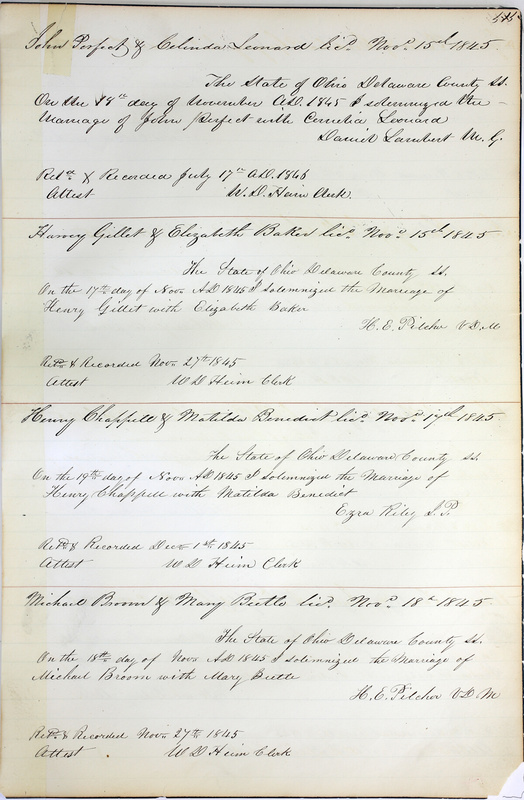 John Perfect & Celinda Leonard licd. Novr. 15th 1845.
The State of Ohio Delaware County ss.
On the 18th day of November A.D. 1845 I solemnized the
Marriage of John Perfect with Leonard
Daniel Lambert M. G.
Retd. & Recorded July 17th A.D. 1846
Attest W. D. Heim Clerk.
Harvey Gillet & Elizabeth Baker licd. Novr. 15th 1845
The State of Ohio Delaware County ss.
On the 17th day of Novr. A.D. 1845 I solemnized the Marriage of
Henry Gillet with Elizabeth Baker
H. E. Pilcher V. D. M
Retd. & Recorded Novr. 27th 1845
Attest W D Heim Clerk
Henry Chappell & Matilda Benedict licd. Novr. 17th 1845
The State of Ohio Delaware County ss.
On the 19th day of Novr A.D. 1845 I solemnized the Marriage of
Henry Chappell with Matilda Benedict
Ezra Riley J. P.
Retd. & Recorded Decr. 1st 1845
Attest W D Heim Clerk
Michael Broom & Mary Beetle licd. Novr. 18th 1845
The State of Ohio Delaware County ss.
On the 18th day of Novr. A.D. 1845 I solemnized the Marriage of
Michael Broom with Mary
H. E. Pilcher V. D. M
Retd. & Recorded Novr. 27th 1845
Attest W D Heim Clerk